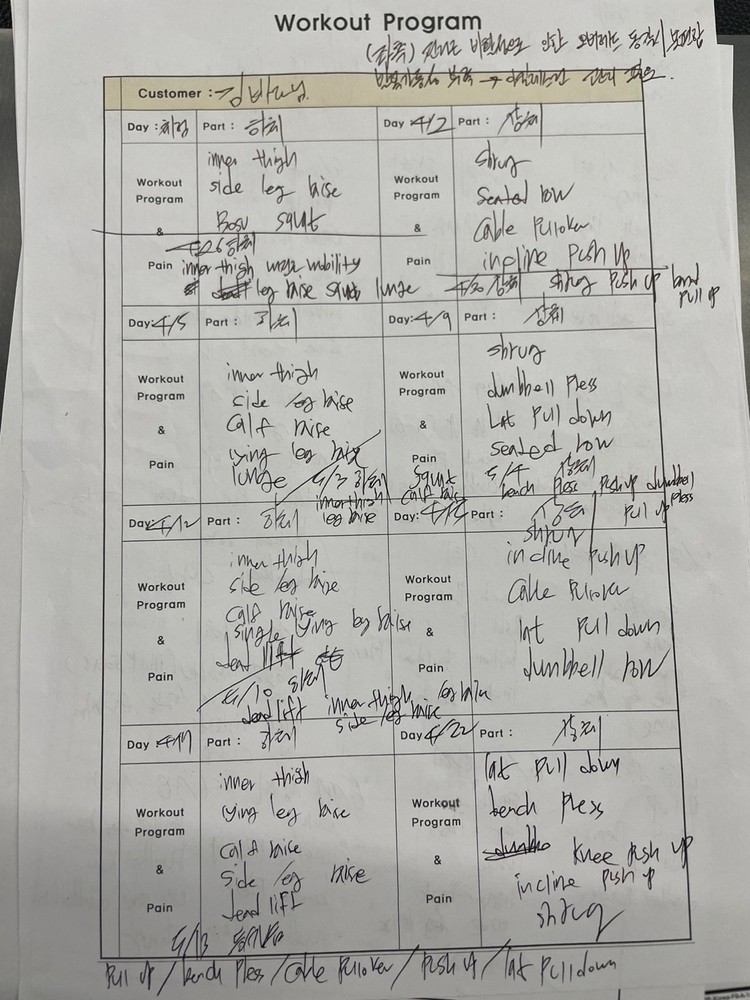 Workout Program
Customer :
Day : 체험 Part : 하체
Workout Program & Pain
inner thigh
side leg raise
Bosu squat
4/26 하체
inner thigh mobility
leg raise squat lunge
Day 4/2 Part : 상체
Workout Program & Pain
shrug
Seated row
Cable Pullover
incline Push up
4/30 상체 shrug Push up band
Pull up
Day: 4/5 Part : 하체
Workout Program & Pain
inner thigh
side leg raise
Calf raise
lying leg raise
lunge
5/3 하체
inner thigh
leg raise
squat
calf raise
Day: 4/9 Part : 상체
Workout Program & Pain
shrug
dumbbell Press
Lat Pull down
seated row
5/4 상체
bench Press Push up dumbbell
Pull up Press
Day: 4/12 Part : 하체
Workout Program & Pain
inner thigh
side leg raise
calf raise
single lying leg raise
dead lift
5/10 하체
deadlift inner thigh leg raise
side leg raise
Day: Part : 상체
Workout Program & Pain
shrug
incline Push up
Cable Pullover
lat Pull down
dumbbell row
Day : 4/17 Part : 하체
Workout Program & Pain
inner thigh
lying leg raise
calf raise
side leg raise
dead lift
5/13
Day 4/22 Part : 상체
Workout Program & Pain
lat Pull down
bench Press
Knee Push up
incline Push up
shrug
Pull up / bench Press / Cable Pullover / Push up / lat Pull down